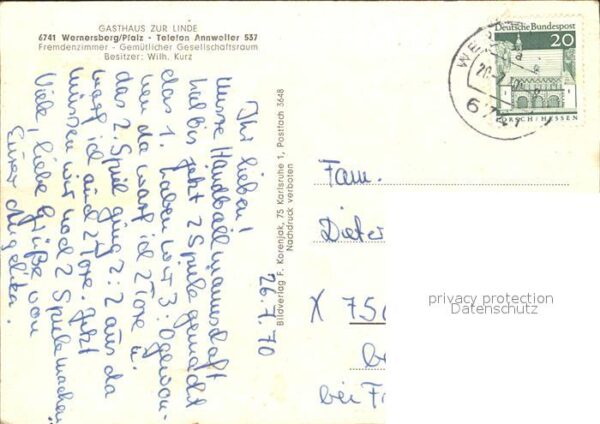 GASTHAUS ZUR LINDE
6741 Wernersberg/Pfalz - Telefon Annweiler 537
Fremdenzimmer - Gemütlicher Gesellschaftsraum
Besitzer: Wilh. Kurz
26.7.70
Ihr lieben!
Unsre Handballmannschaft
hat bis jetzt 2 Spiele gemacht
das 1. haben wir 3:0 gewon-
nen da warf ich 2 Tore u.
das 2. Spiel ging 2:2 aus da
warf ich auch 2 Tore. Jetzt
müssen wir noch 2 Spiele machen
Viele, liebe Grüße von
Eurer Angelika.
Bildverlag F. Korenjak, 75 Karlsruhe 1, Postfach 3648
Nachdruck verboten
Deutsche Bundespost
20
LORSCH/HESSEN
WE
674
Fam.
Dieter
X 75
bei
privacy protection
Datenschutz